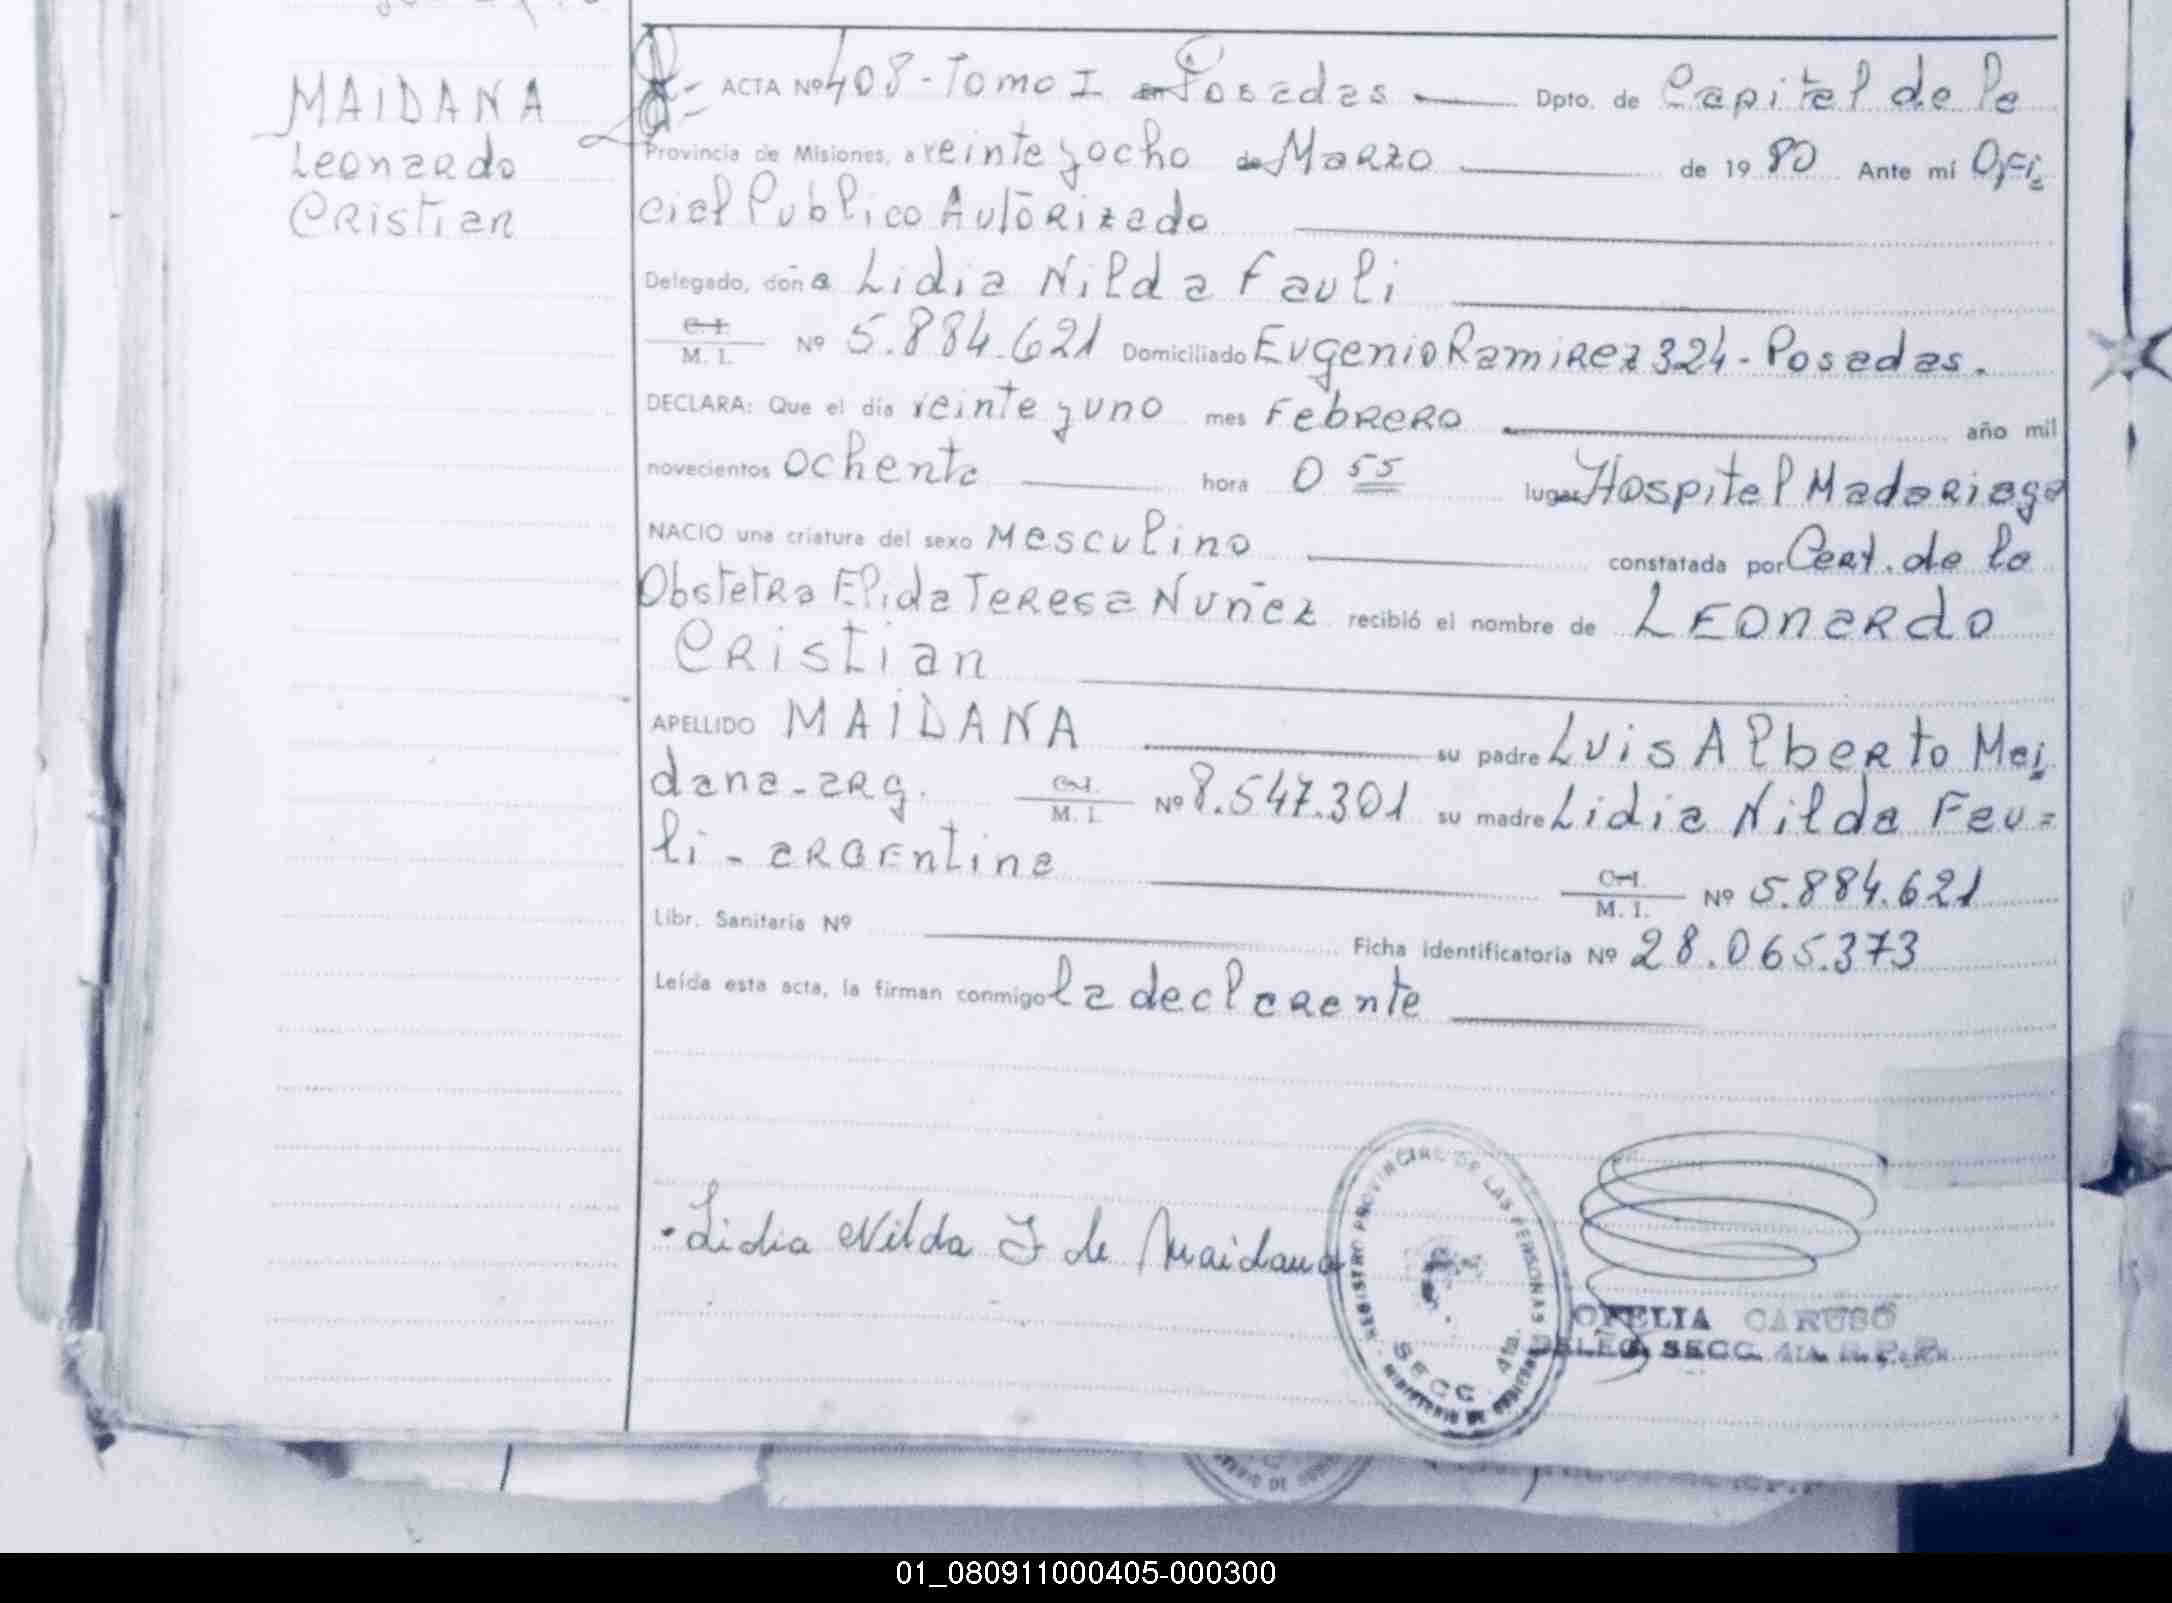 MAIDANA
Leonardo
Cristian
ACTA Nº 408 - Tomo I en Posadas Dpto. de Capital de la
Provincia de Misiones, a veinte y ocho de Marzo de 1980 Ante mí Ofi=
cial Publico Autorizado
Delegado, doña Lidia Nilda Fauli
C. I.
M. I. Nº 5.884.621 Domiciliado Eugenio Ramirez 324 - Posadas.
DECLARA: Que el día veinte y uno mes Febrero año mil
novecientos ochenta hora 0 55 lugar Hospital Madariaga
NACIO una criatura del sexo Masculino constatada por Cert. de la
Obstetra Elida Teresa Nuñez recibió el nombre de LEOnARdo
Cristian
APELLIDO MAIDANA su padre Luis Alberto Mai
dana - arg. C. I. M. I. Nº 8.547.301 su madre Lidia Nilda Fau=
li - argentina C. I. M. I. Nº 5.884.621
Libr. Sanitaria Nº Ficha identificatoria Nº 28.065.373
Leída esta acta, la firman conmigo la declarante
Lidia Nilda F de Maidana
REGISTRO PROVINCIAL DE LAS PERSONAS
SECC. 4ta.
MINISTERIO DE GOBIERNO
OFELIA CARUSO
DELEG. SECC. 4ta. R.P.P.
01_080911000405-000300